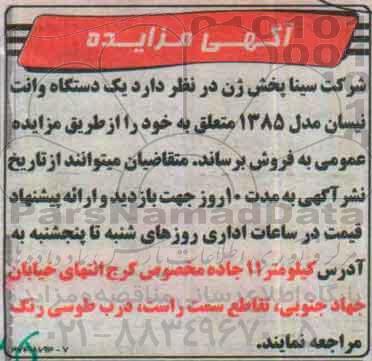 آگهی مزایده
شرکت سینا پخش ژن در نظر دارد یک دستگاه وانت
نیسان مدل ۱۳۸۵ متعلق به خود را از طریق مزایده
عمومی به فروش برساند. متقاضیان میتوانند از تاریخ
نشر آگهی به مدت ۱۰ روز جهت بازدید و ارائه پیشنهاد
قیمت در ساعات اداری روزهای شنبه تا پنجشنبه به
آدرس کیلومتر ۱۱ جاده مخصوص کرج انتهای خیابان
جهاد جنوبی، تقاطع سمت راست، درب طوسی رنگ
مراجعه نمایند.
ParsNamadData
۰۲۱-۸۸۳۴۹۶۷۰